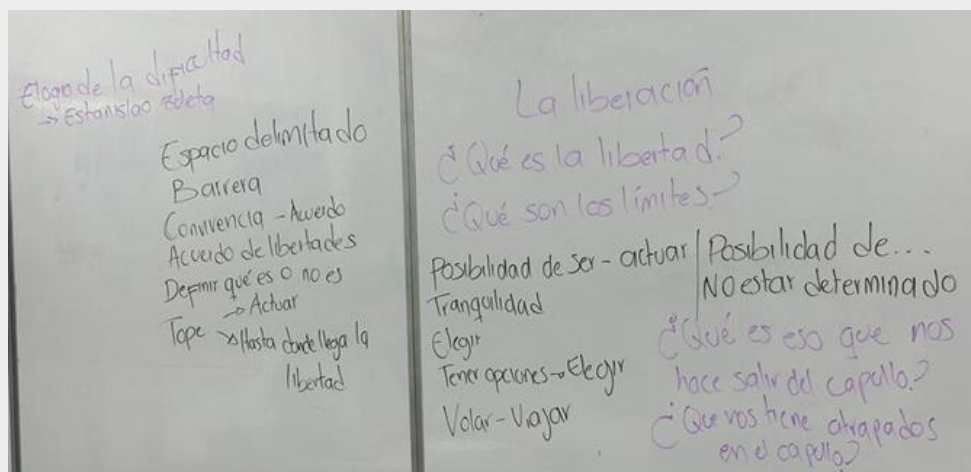 Elogio de la dificultad
→ Estanislao Zuleta
Espacio delimitado
Barrera
Convivencia - Acuerdo
Acuerdo de libertades
Definir qué es o no es
→ Actuar
Tope → Hasta donde llega la
libertad
La liberación
¿Qué es la libertad?
¿Qué son los límites?
Posibilidad de ser - actuar
Tranquilidad
Elegir
Tener opciones → Elegir
Volar - Viajar
Posibilidad de...
No estar determinado
¿Qué es eso que nos
hace salir del capullo?
¿Que nos tiene atrapados
en el capullo?